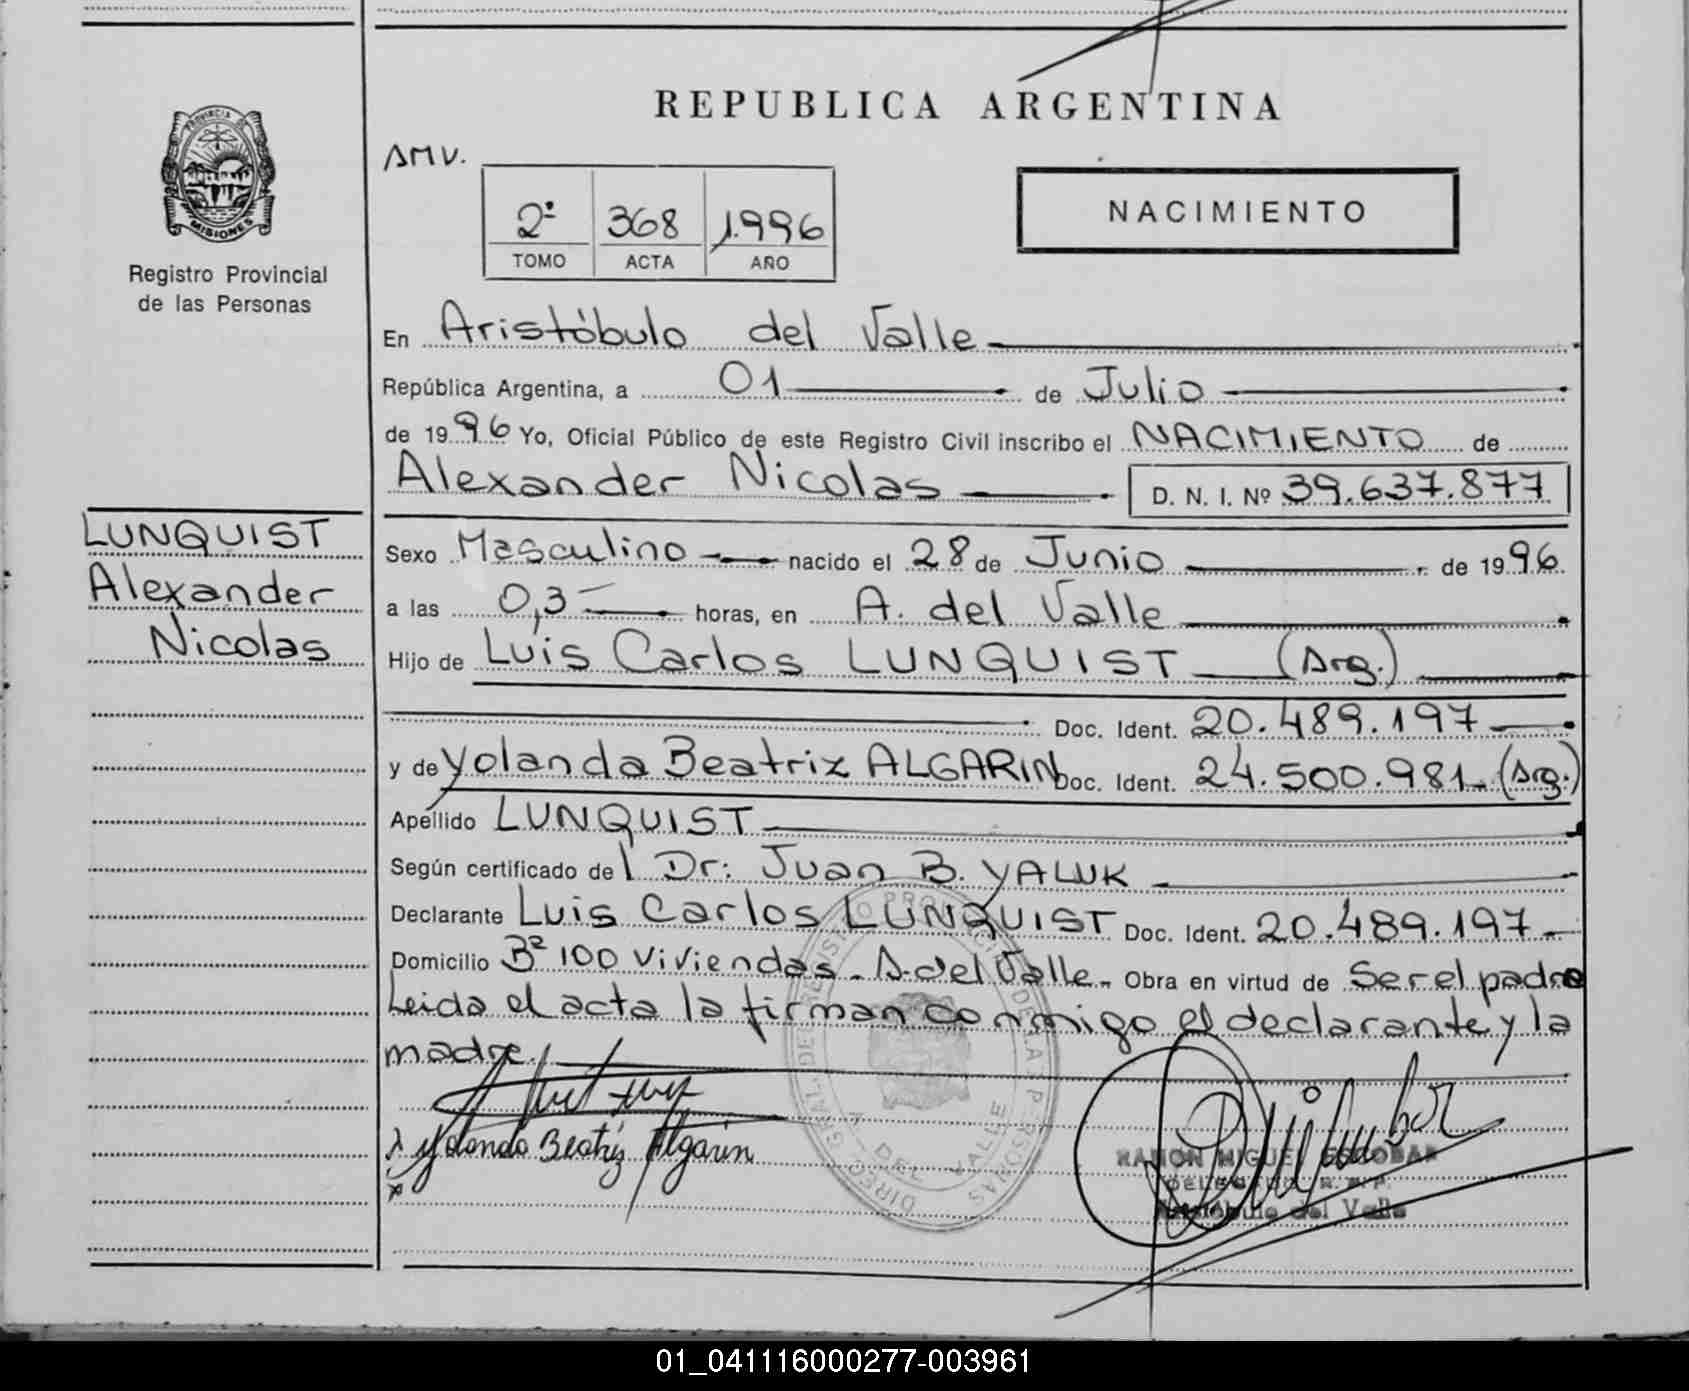 REPUBLICA ARGENTINA
AMV.
PROVINCIA DE
MISIONES
Registro Provincial
de las Personas
2º 368 1.996
TOMO ACTA AÑO
NACIMIENTO
En Aristóbulo del Valle
República Argentina, a 01 de Julio
de 1996 Yo, Oficial Público de este Registro Civil inscribo el NACIMIENTO de
Alexander Nicolas D. N. I. Nº 39.637.877
LUNQUIST
Alexander
Nicolas
Sexo Masculino nacido el 28 de Junio de 1996.
a las 0,3 horas, en A. del Valle
Hijo de Luis Carlos LUNQUIST (Arg.)
Doc. Ident. 20.489.197
y de Yolanda Beatriz ALGARIN Doc. Ident. 24.500.981 (Arg.)
Apellido LUNQUIST
Según certificado del Dr: Juan B. YALUK
Declarante Luis Carlos LUNQUIST Doc. Ident. 20.489.197
Domicilio Bº 100 Viviendas - A. del Valle - Obra en virtud de Ser el padre
Leida el acta la firman conmigo el declarante y la
madre.
Yolanda Beatriz Algarin
RAMON MIGUEL ESCOBAR
DELEGADO R. P. P.
Aristóbulo del Valle
DIRECC. GRAL. DE REGISTRO PROVINCIAL DE LAS PERSONAS
A. DEL VALLE
01_041116000277-003961